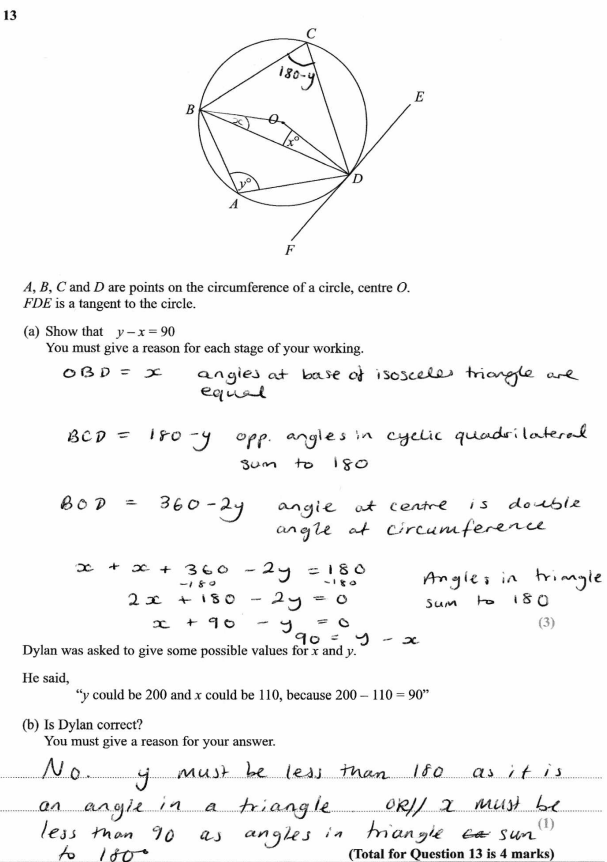 13
C
180-y
B
O
x
x°
E
y°
D
A
F
A, B, C and D are points on the circumference of a circle, centre O.
FDE is a tangent to the circle.
(a) Show that y – x = 90
You must give a reason for each stage of your working.
OBD = x angles at base of isosceles triangle are
equal
BCD = 180 - y opp. angles in cyclic quadrilateral
sum to 180
BOD = 360 - 2y angle at centre is double
angle at circumference
x + x + 360 - 2y = 180 Angles in triangle
-180 -180
2x + 180 - 2y = 0 sum to 180
x + 90 - y = 0 (3)
90 = y - x
Dylan was asked to give some possible values for x and y.
He said,
“y could be 200 and x could be 110, because 200 – 110 = 90”
(b) Is Dylan correct?
You must give a reason for your answer.
No. y must be less than 180 as it is
an angle in a triangle OR// x must be
(1)
less than 90 as angles in triangle sum
to 180°
(Total for Question 13 is 4 marks)